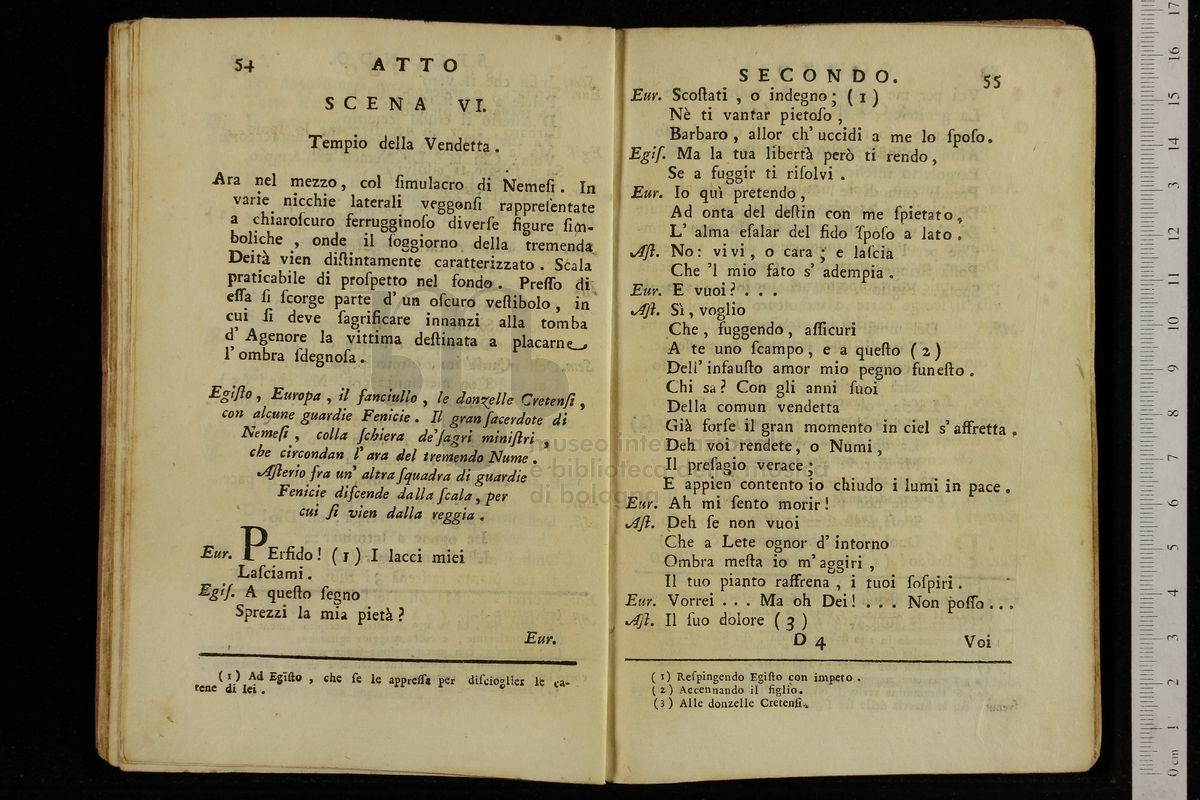 54 ATTO
SCENA VI.
Tempio della Vendetta.
Ara nel mezzo, col ſimulacro di Nemeſi. In
varie nicchie laterali veggonſi rappreſentate
a chiaroſcuro ferrugginoſo diverſe figure ſim-
boliche, onde il ſoggiorno della tremenda
Deità vien diſtintamente caratterizzato. Scala
praticabile di proſpetto nel fondo. Preſſo di
eſſa ſi ſcorge parte d' un oſcuro veſtibolo, in
cui ſi deve ſagrificare innanzi alla tomba
d' Agenore la vittima deſtinata a placarne
l' ombra ſdegnoſa.
Egiſto, Europa, il fanciullo, le donzelle Cretenſi,
con alcune guardie Fenicie. Il gran ſacerdote di
Nemeſi, colla ſchiera de' ſagri miniſtri,
che circondan l' ara del tremendo Nume.
Aſterio fra un' altra ſquadra di guardie
Fenicie diſcende dalla ſcala, per
cui ſi vien dalla reggia.
Eur. PErfido! (1) I lacci miei
Laſciami.
Egiſ. A queſto ſegno
Sprezzi la mia pietà?
Eur.
(1) Ad Egiſto, che ſe le appreſſa per diſcioglier le ca-
tene di lei.
SECONDO. 55
Eur. Scoſtati, o indegno; (1)
Nè ti vantar pietoſo,
Barbaro, allor ch' uccidi a me lo ſpoſo.
Egiſ. Ma la tua libertà però ti rendo,
Se a fuggir ti riſolvi.
Eur. Io quì pretendo,
Ad onta del deſtin con me ſpietato,
L' alma eſalar del fido ſpoſo a lato.
Aſt. No: vivi, o cara; e laſcia
Che 'l mio fato s' adempia.
Eur. E vuoi? ...
Aſt. Sì, voglio
Che, fuggendo, aſſicuri
A te uno ſcampo, e a queſto (2)
Dell' infauſto amor mio pegno funeſto.
Chi sa? Con gli anni ſuoi
Della comun vendetta
Già forſe il gran momento in ciel s' affretta.
Deh voi rendete, o Numi,
Il preſagio verace;
E appien contento io chiudo i lumi in pace.
Eur. Ah mi ſento morir!
Aſt. Deh ſe non vuoi
Che a Lete ognor d' intorno
Ombra meſta io m' aggiri,
Il tuo pianto raffrena, i tuoi ſoſpiri.
Eur. Vorrei ... Ma oh Dei! ... Non poſſo...
Aſt. Il ſuo dolore (3)
D 4 Voi
(1) Reſpingendo Egiſto con impeto.
(2) Accennando il figlio.
(3) Alle donzelle Cretenſi.
museo internazionale
e biblioteca della musica
di bologna
0 cm 1 2 3 4 5 6 7 8 9 10 11 12 13 14 15 16 17